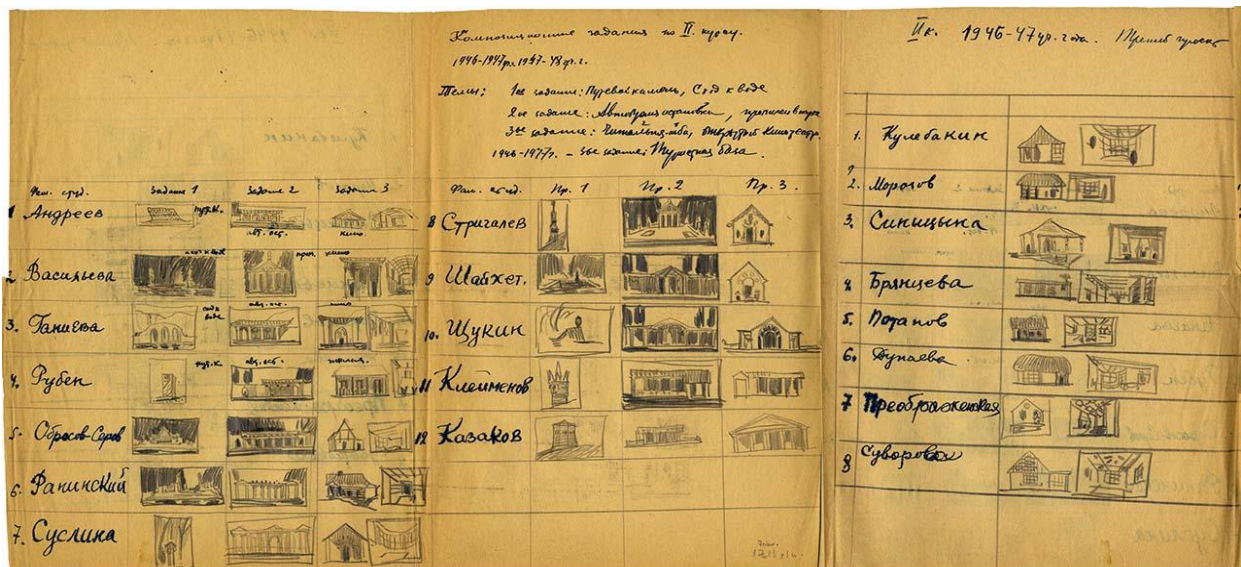 Композиционные задания по II курсу.
1946-1947 1947-48 уч. г.
Темы: 1ое задание: Путевой камень, Сход к воде
2ое задание: Автобусная остановка,
3ье задание: Читальня-изба, открытый кинотеатр.
3ье задание: Туристская база.
Фам. студ. Задание 1 Задание 2 Задание 3
1 Андреев
пут. к.
авт. ост.
кино
2 Васильева
кино
3. Ганиева
сход к воде
авт. ост.
кино
4. Рубен
пут. к.
авт. ост.
5. Образов-Серов
6. Ранинский
7. Суслина
Фам. студ. Пр. 1 Пр. 2 Пр. 3.
8 Стригалев
9 Шайхет.
10. Щукин
11 Клейменов
12 Казаков
II к. 1946-47 уч. года.
1. Кулебакин
2. Морозов
3. Синицына
4. Брянцева
5. Потапов
6. Дунаева
7 Преображенская
8 Суворова